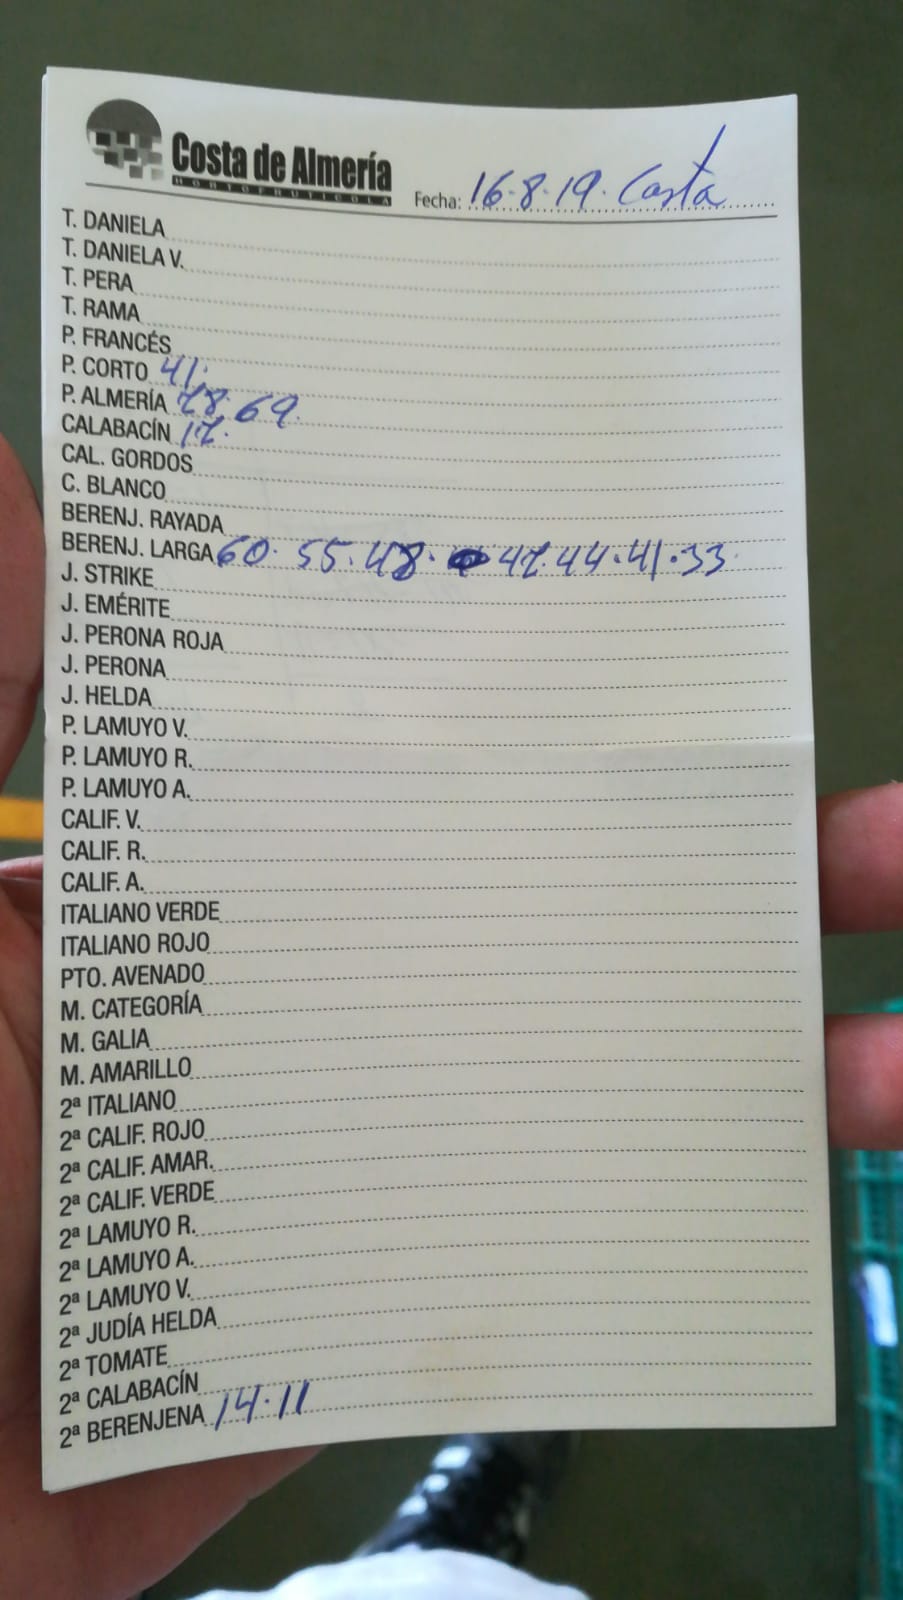 Costa de Almería
HORTOFRUTICOLA
Fecha: 16.8.19. Costa
T. DANIELA
T. DANIELA V.
T. PERA
T. RAMA
P. FRANCÉS
P. CORTO 41.
P. ALMERÍA 78.69.
CALABACÍN 17.
CAL. GORDOS
C. BLANCO
BERENJ. RAYADA
BERENJ. LARGA 60. 55. 48. 47. 44. 41. 33.
J. STRIKE
J. EMÉRITE
J. PERONA ROJA
J. PERONA
J. HELDA
P. LAMUYO V.
P. LAMUYO R.
P. LAMUYO A.
CALIF. V.
CALIF. R.
CALIF. A.
ITALIANO VERDE
ITALIANO ROJO
PTO. AVENADO
M. CATEGORÍA
M. GALIA
M. AMARILLO
2ª ITALIANO
2ª CALIF. ROJO
2ª CALIF. AMAR.
2ª CALIF. VERDE
2ª LAMUYO R.
2ª LAMUYO A.
2ª LAMUYO V.
2ª JUDÍA HELDA
2ª TOMATE
2ª CALABACÍN
2ª BERENJENA 14.11